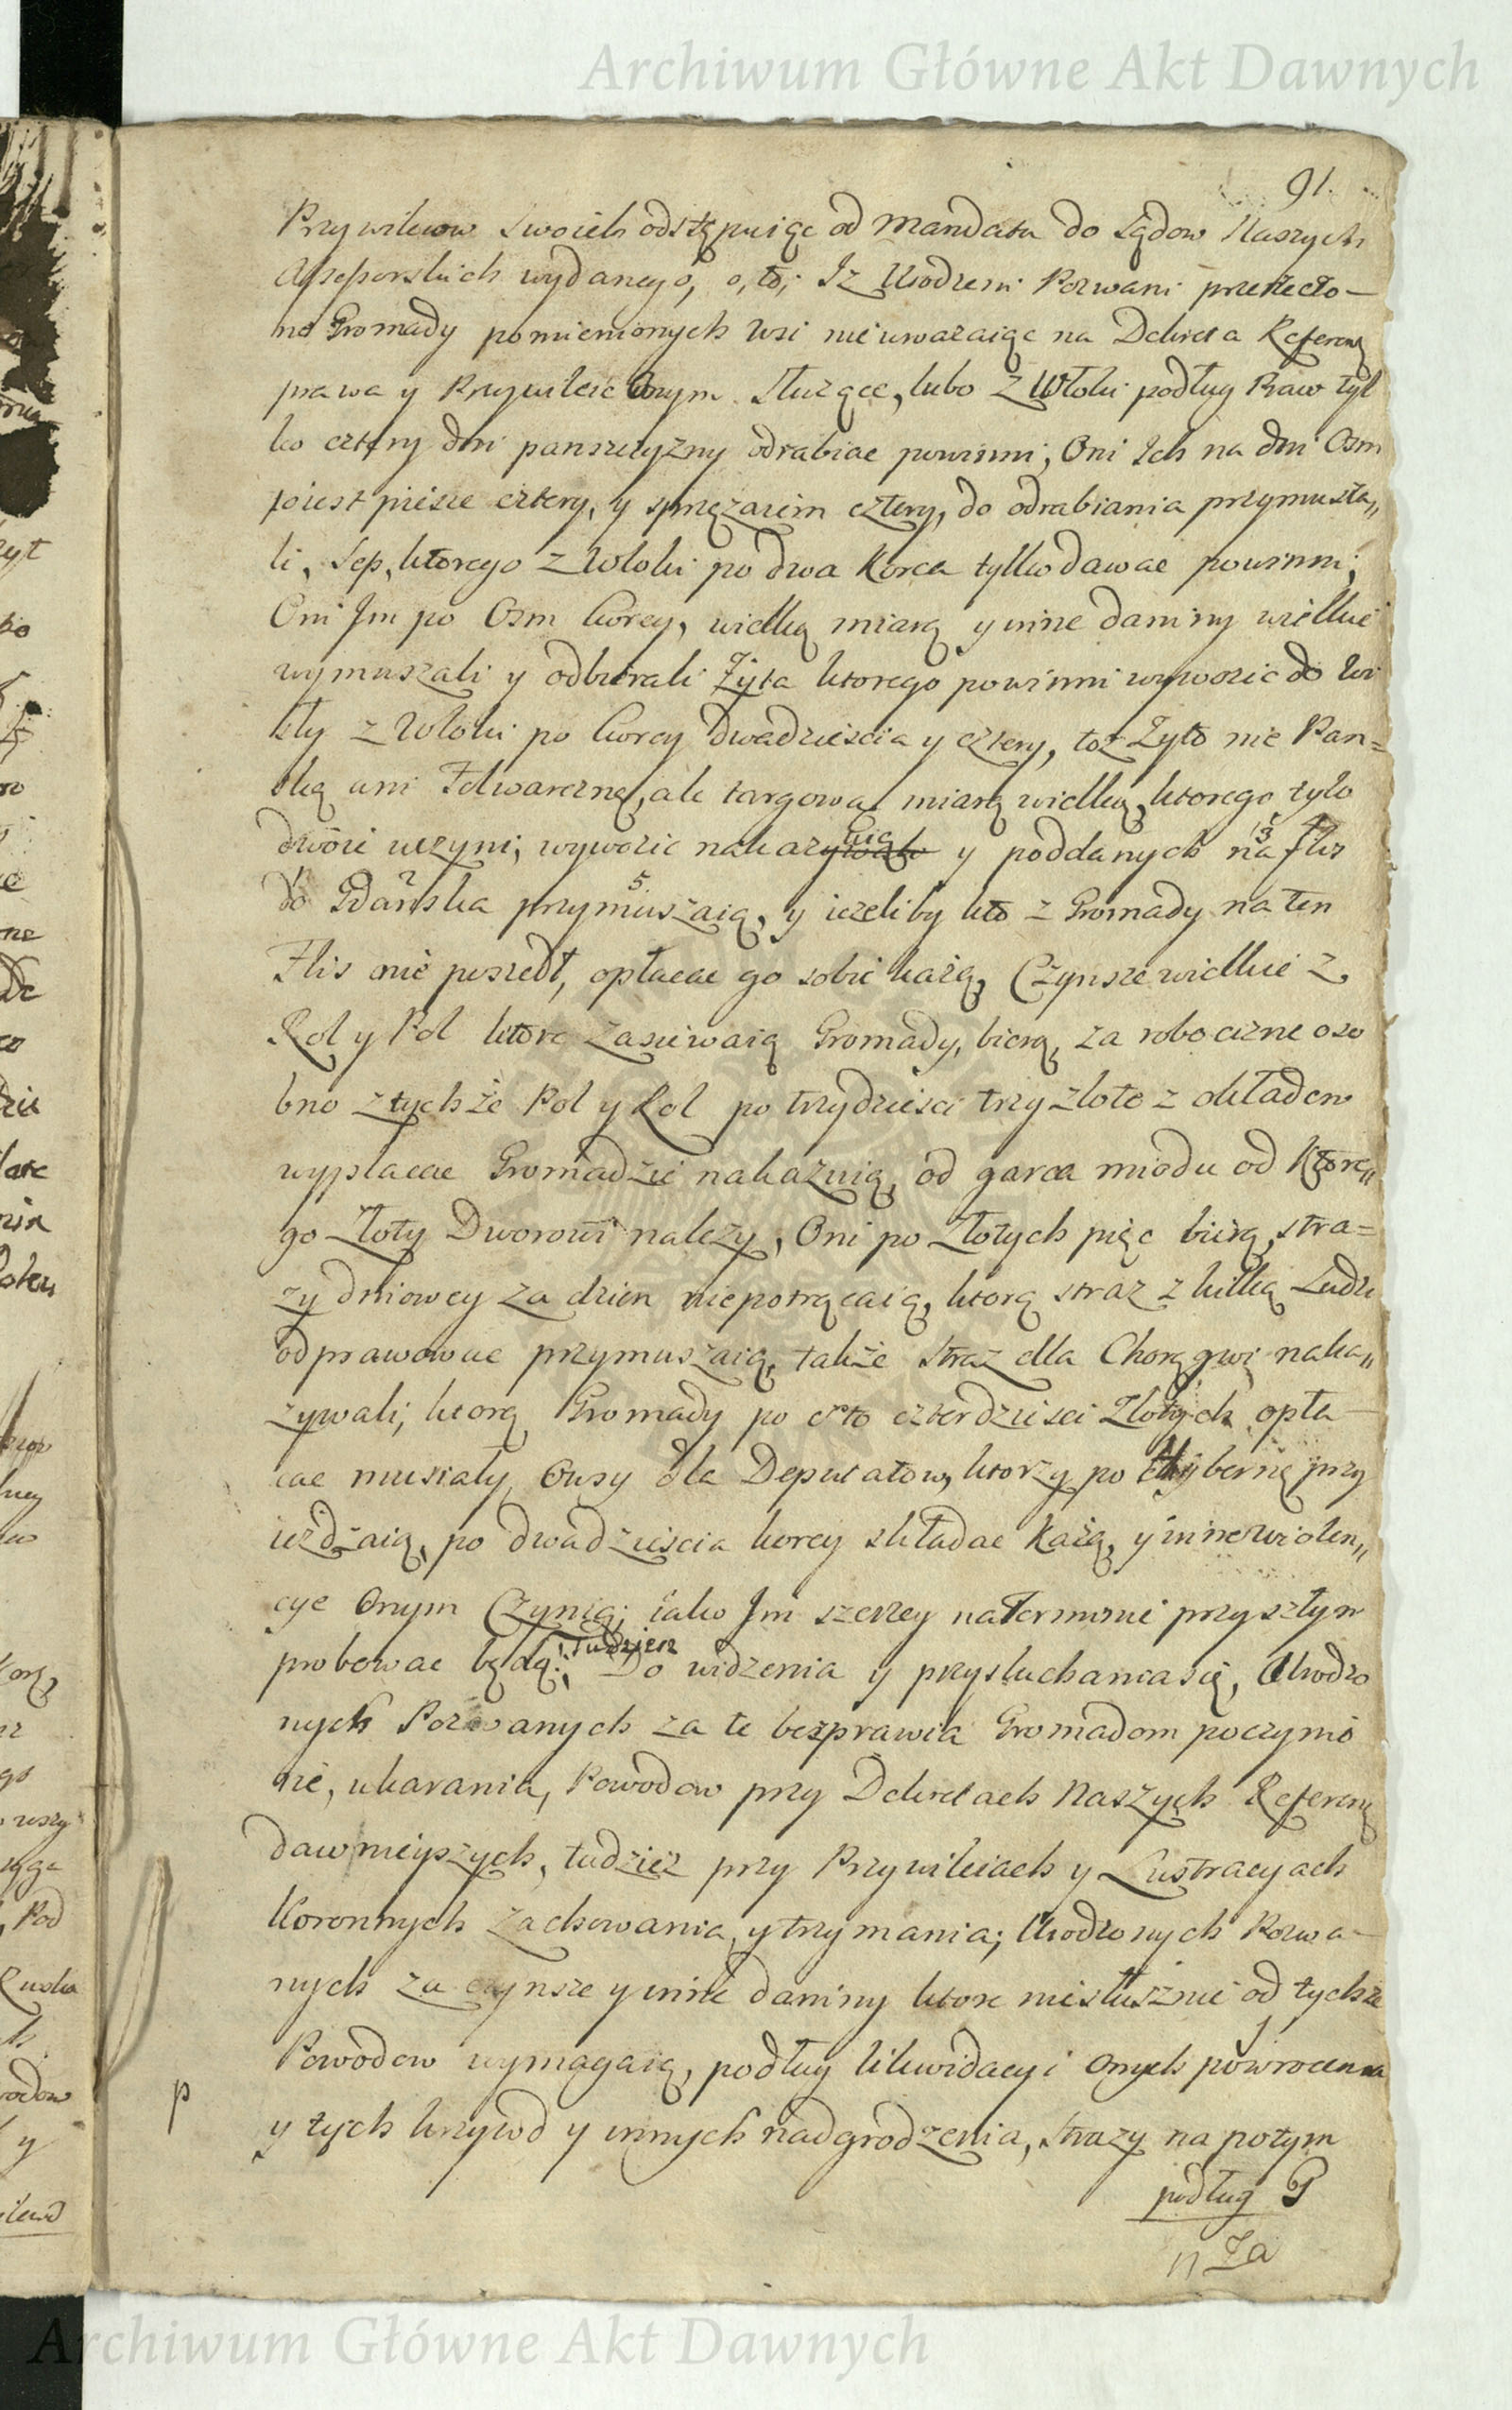 Archiwum Główne Akt Dawnych
91.
Przywilejow swoich odstępuiąc od Mandatu do Sądow Naszych
Assessorskich wydanego, o, to; Iz Urodzeni Pozwani przerzeczo-
ne Gromady pomienionych Wsi nie uwazaiąc na Dekreta Referen:
prawa y Przywileie Onym Sluzące, lubo z Włoki podług Praw tyl
ko cztery dni panszczyzny odrabiac powinni; Oni Ich na dni Osm
to iest piesze cztery, y sprzęzaiem cztery, do odrabiania przymusza„
li, Sep, ktorego z Wloki po dwa Korca tylko dawac powinni;
Oni Im po Osm korcy, wielką miarą y inne daniny wielkie
wymuszali y odbierali Zyta ktorego powinni wywozic do Wi
sły z Wloki po korcy dwadziescia y cztery, toz Zyto nie Pan=
ską ani Folwarczną, ale targową miarą wielką, ktorego tylo
dwoie uczyni; wywozic nakazuią y poddanych na flis
do Gdańska przymuszaią, y iezeliby kto z Gromady na ten
Flis nie poszedł, opłacac go sobie każą, Czynsze wielkie z
Rol y Pol ktore zasiewaią Gromady, biorą, za robocizne oso
bno z tychże Pol y Rol po trzydziesci trzy złote z okładem
wypłacac Gromadzie nakazuią, od garca miodu od ktore„
go Złoty Dworowi nalezy, Oni po Złotych pięc biorą, stra=
zy dniowey za dzien niepotrącaią, ktorą straz z kilką Ludzi
odprawowac przymuszaią, także straz dla Chorągwi naka„
zywali; ktorą Gromady po sto czterdziesci Złotych opła-
cac musiały, Owsy dla Deputatow, ktorzy po Hybernę przy
iezdzaią, po dwadziescia korcy składac każą, y inne wiolen„
cye Onym Czynią; iako Im szerzey na Terminie przyszłym
probowac będą; Tudziesz Do widzenia y przysłuchania się, Urodzo
nych Pozwanych za te bezprawia Gromadom poczynio
ne, ukarania, Powodow przy Dekretach Naszych Referen:
dawnieyszych, tudziez przy Przywileiach y Lustracyach
Koronnych zachowania, y trzymania; Urodzonych Pozwa-
nych za czynsze y inne daniny ktore niesłusznie od tychze
Powodow wymagaią, podług likwidacyi Onych powrocenia
p
y tych krzywd y innych nadgrodzenia, strazy na potym
podług P
Za
Archiwum Główne Akt Dawnych